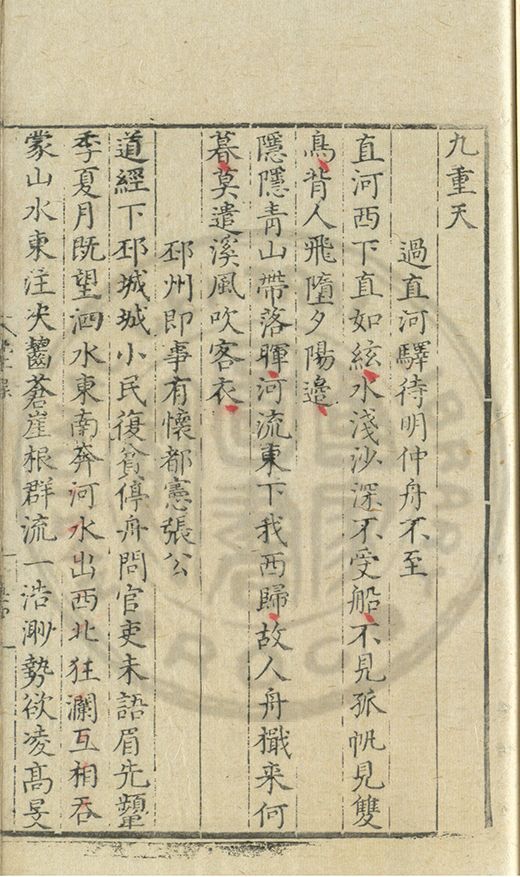 九重天
過直河驛待明仲舟不至
直河西下直如絃水淺沙深不受船不見孤帆見雙
鳥背人飛墮夕陽邉
隱隱青山帶落暉河流東下我西歸故人舟檝来何
暮莫遣溪風吹客衣
邳州即事有懷都憲張公
道經下邳城城小民復貧停舟問官吏未語眉先顰
季夏月既望泗水東南奔河水出西北狂瀾互相吞
蒙山水東注決齧蒼崖根群流一浩渺勢欲凌髙旻